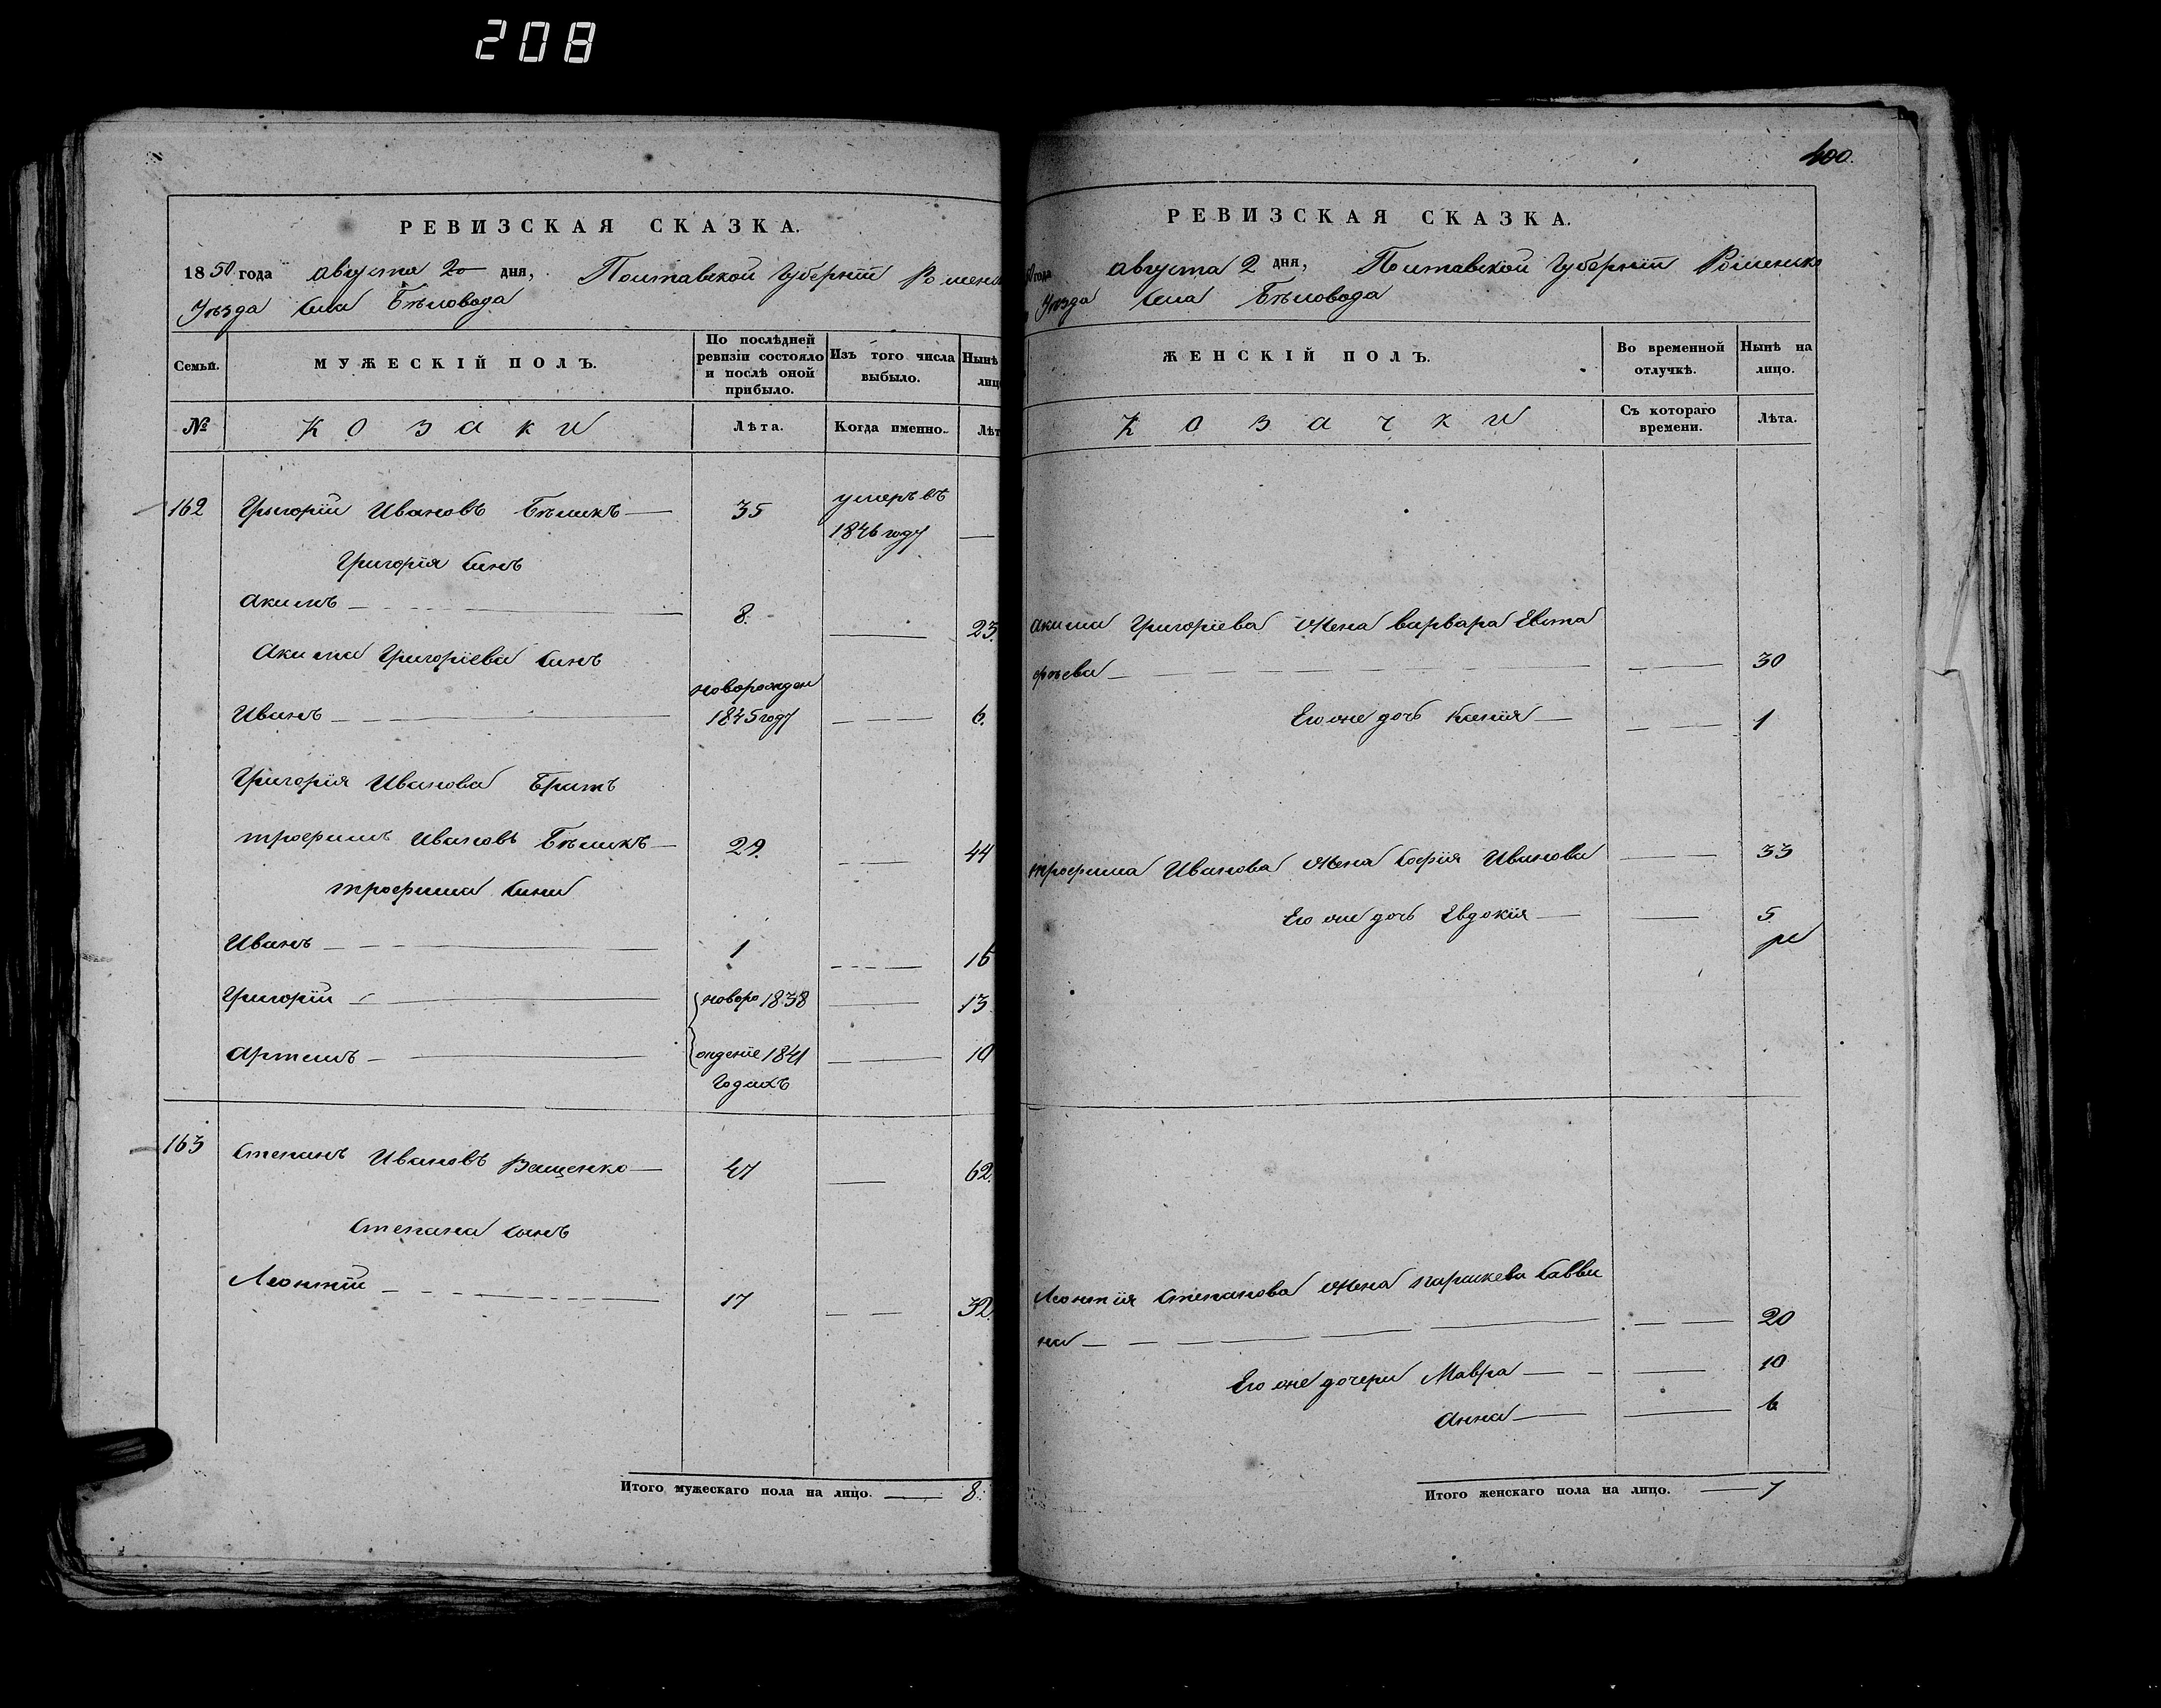 208
РЕВИЗСКАЯ СКАЗКА.
1850 года августа 2го дня, Полтавской Губерніи Роменск
Уѣзда Села Бѣловода
Семьи.
МУЖЕСКІЙ ПОЛЪ.
По послѣдней ревизіи состояло и послѣ оной прибыло.
Изъ того числа выбыло.
Нынѣ лицо
№
Козаки
Лѣта.
Когда именно.
Лѣт
162 Григорій Ивановъ Бѣликъ 35 умеръ въ
1846 году
Григорія Синъ
Акимъ 8. 23.
Акима Григоріева Синъ
новорожден
Иванъ 1845 году 6.
Григорія Иванова Братъ
трофимъ Ивановъ Бѣликъ 29. 44
трофима Сини
Иванъ 1 16
Григорій новоро 1838 13
Артемъ ждение 1841 10
Годахъ
163 Степанъ Ивановъ Ващенко 47 62.
Степана Сынъ
Леонтій 17 32.
Итого мужескаго пола на лицо. 8.
400.
РЕВИЗСКАЯ СКАЗКА.
50 года августа 2 дня, Полтавской Губерніи Роменско
Уѣзда Села Бѣловода
ЖЕНСКІЙ ПОЛЪ.
Во временной отлучкѣ.
Нынѣ на лицо.
Козачки
Съ котораго времени.
Лѣта.
Акима Григоріева Жена варвара Евста
фѣева 30
Его же дочь Ксенія 1
трофима Иванова Жена Софія Иванова 33
Его же дочь Евдокія 5
Леонтія Степанова Жена параскева Савви
на 20
Его же дочери Мавра 10
Анна 6
Итого женскаго пола на лицо. 7